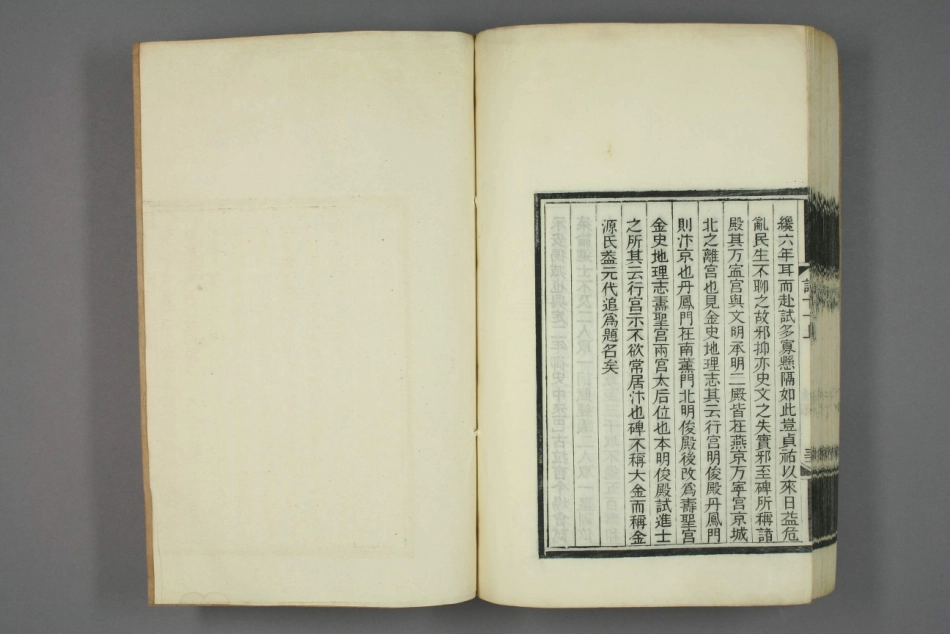 纔六年耳而赴試多寡懸隔如此豈貞祐以來日益危
亂民生不聊之故邪抑亦史文之失實邪至碑所稱諸
殿其万寍宫與文明承明二殿皆在燕京万寧宫京城
北之離宫也見金史地理志其云行宫明俊殿丹鳳門
則汴京也丹鳳門在南薰門北明俊殿後改爲壽聖宫
金史地理志壽聖宫兩宫太后位也本明俊殿試進士
之所其云行宫示不欲常居汴也碑不稱大金而稱金
源氏蓋元代追爲題名矣